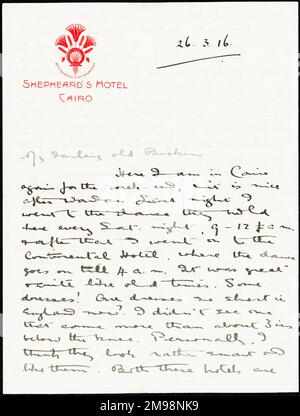 SHEPHEARD'S HOTEL
CAIRO
26.3.16.
My darling old
Here I am in Cairo
again for the week-end, & it is nice
after Wardan. Last night I
went to the dance they hold
here every Sat. night, 9-12 p.m.
& after that I went on to the
Continental Hotel, where the dance
goes on till 4 a.m. It was great
& quite like old times. Some
dresses! Are dresses so short in
England now? I didn't see one
that came more than about 3 ins
below the knee. Personally, I
think they look rather smart and
like them. Both these hotels are
alamy
alamy
Image ID: 2M98NK9
www.alamy.com